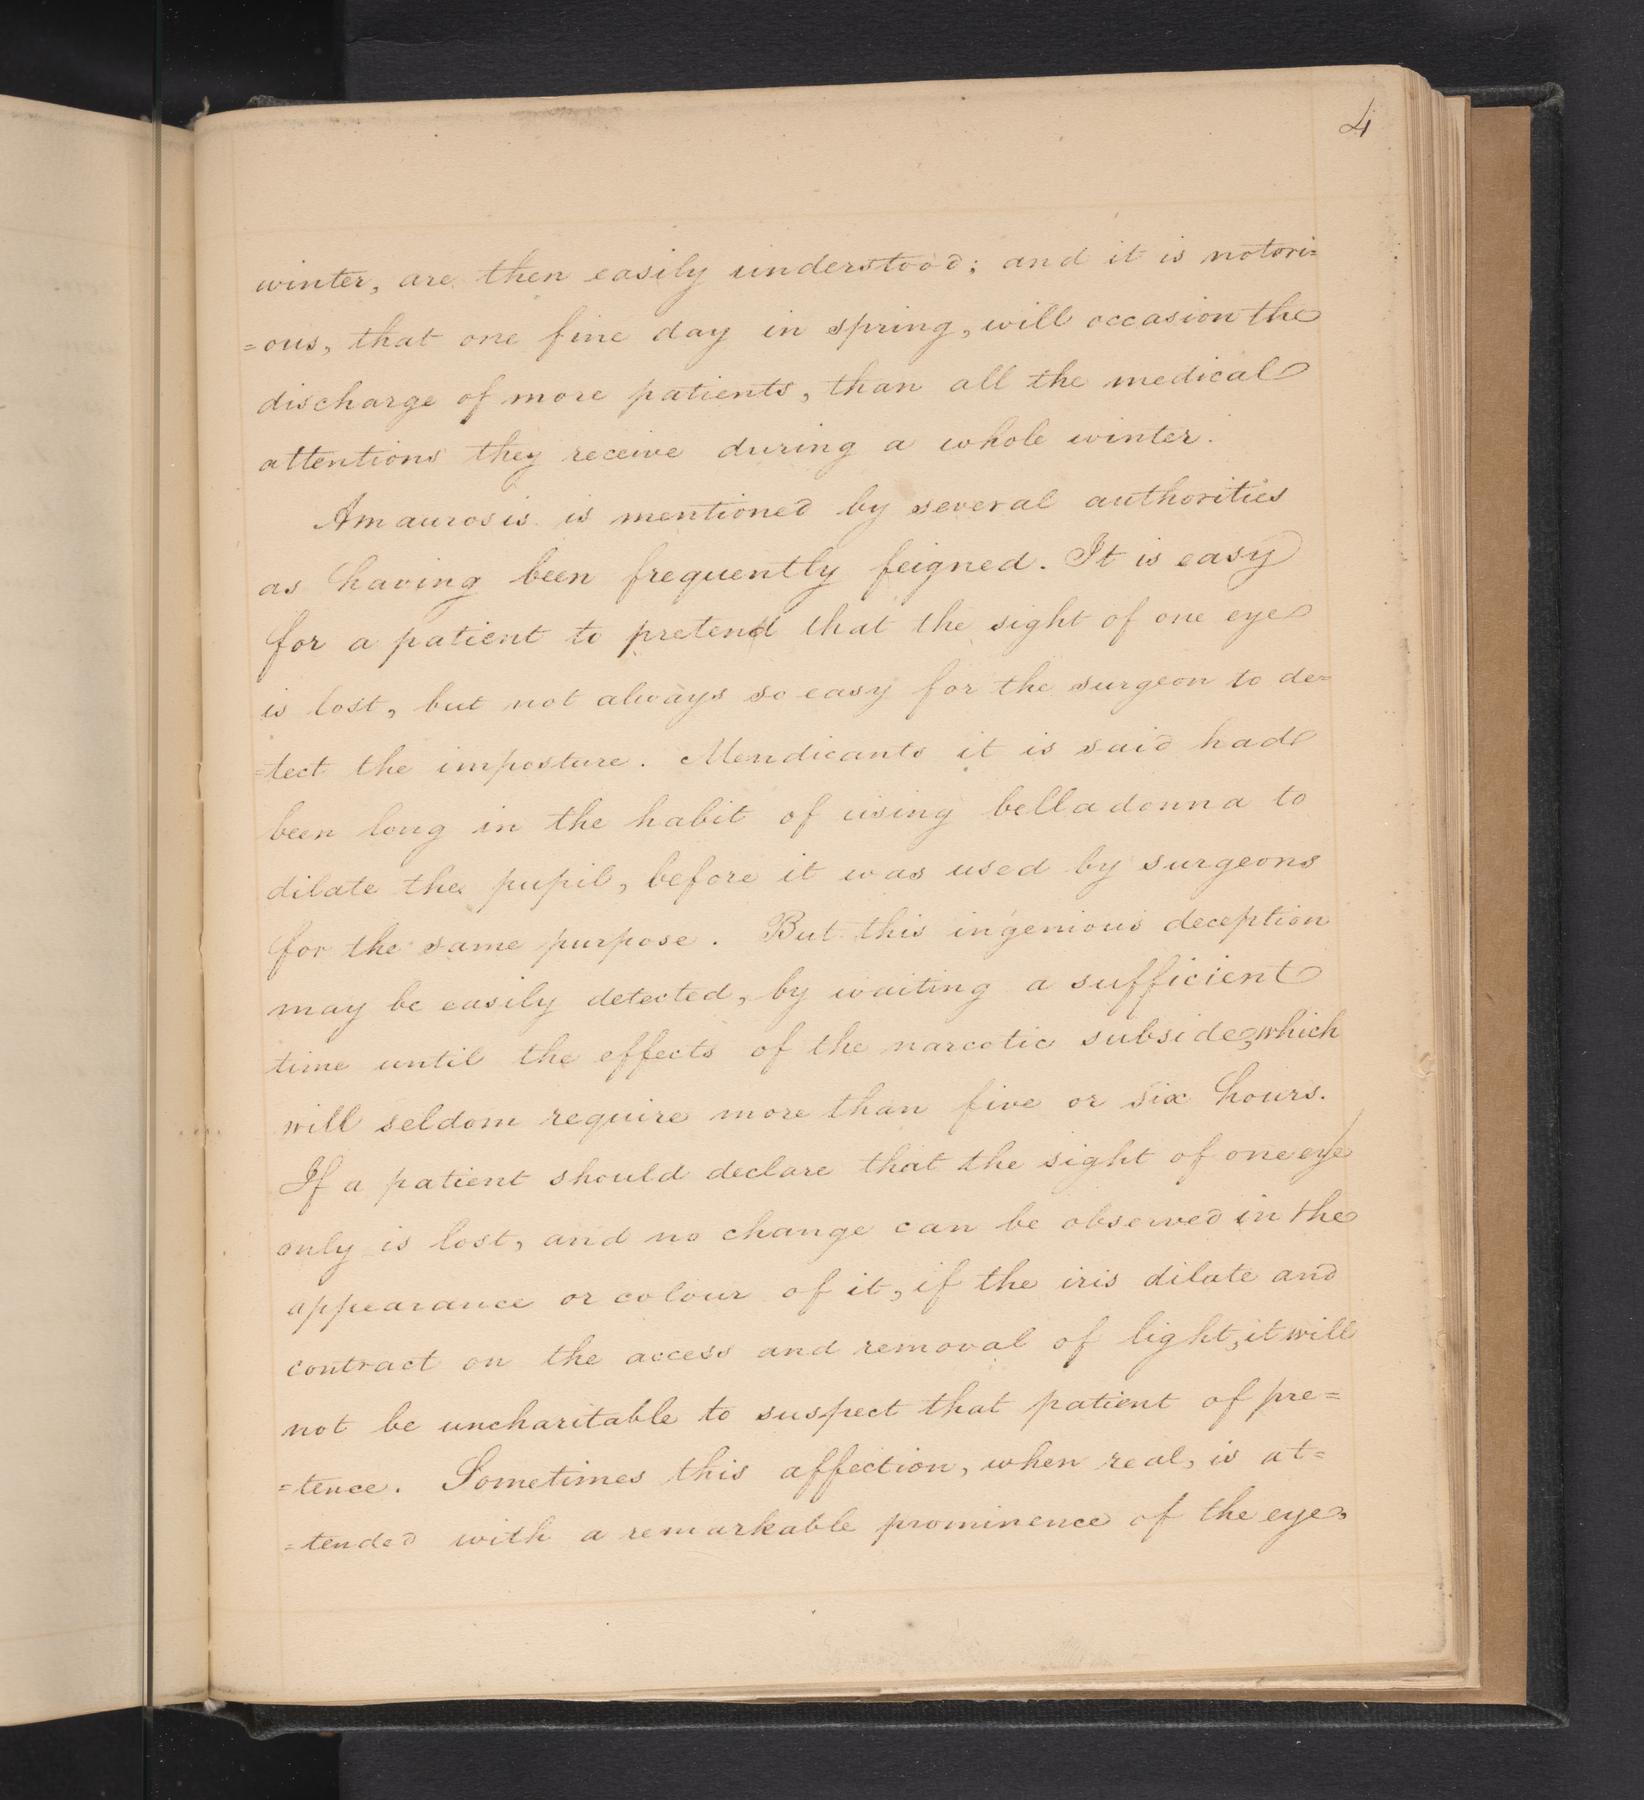 4
winter, are then easily understood; and it is notori=
=ous, that one fine day in spring, will occasion the
discharge of more patients, than all the medical
attentions they receive during a whole winter.
Amaurosis is mentioned by several authorities
as having been frequently feigned. It is easy
for a patient to pretend that the sight of one eye
is lost, but not always so easy for the surgeon to de=
=tect the imposture. Mendicants it is said had
been long in the habit of using belladonna to
dilate the pupil, before it was used by surgeons
for the same purpose. But this ingenious deception
may be easily detected, by waiting a sufficient
time until the effects of the narcotic subside, which
will seldom require more than five or six hours.
If a patient should declare that the sight of one eye
only is lost, and no change can be observed in the
appearance or colour of it, if the iris dilate and
contract on the access and removal of light, it will
not be uncharitable to suspect that patient of pre=
=tence. Sometimes this affection, when real, is at=
=tended with a remarkable prominence of the eye,